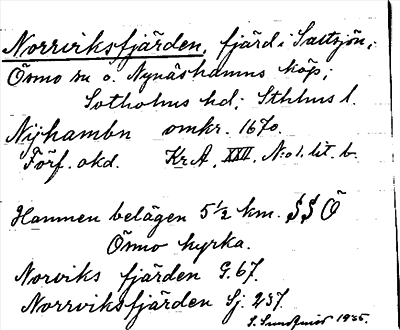 Norrviksfjärden, fjärd i Saltsjön;
Ösmo sn o. Nynäshamns köp;
Sotholms hd; Sthlms l.
Nijhambn omkr. 1670.
Förf. okd. Kr A. XXVI. N:o 1. lit. b.
Hamnen belägen 5 1/2 km. SSÖ
Ösmo kyrka.
Norviks fjärden G. 67.
Norrviksfjärden Sj. 237.
1935.